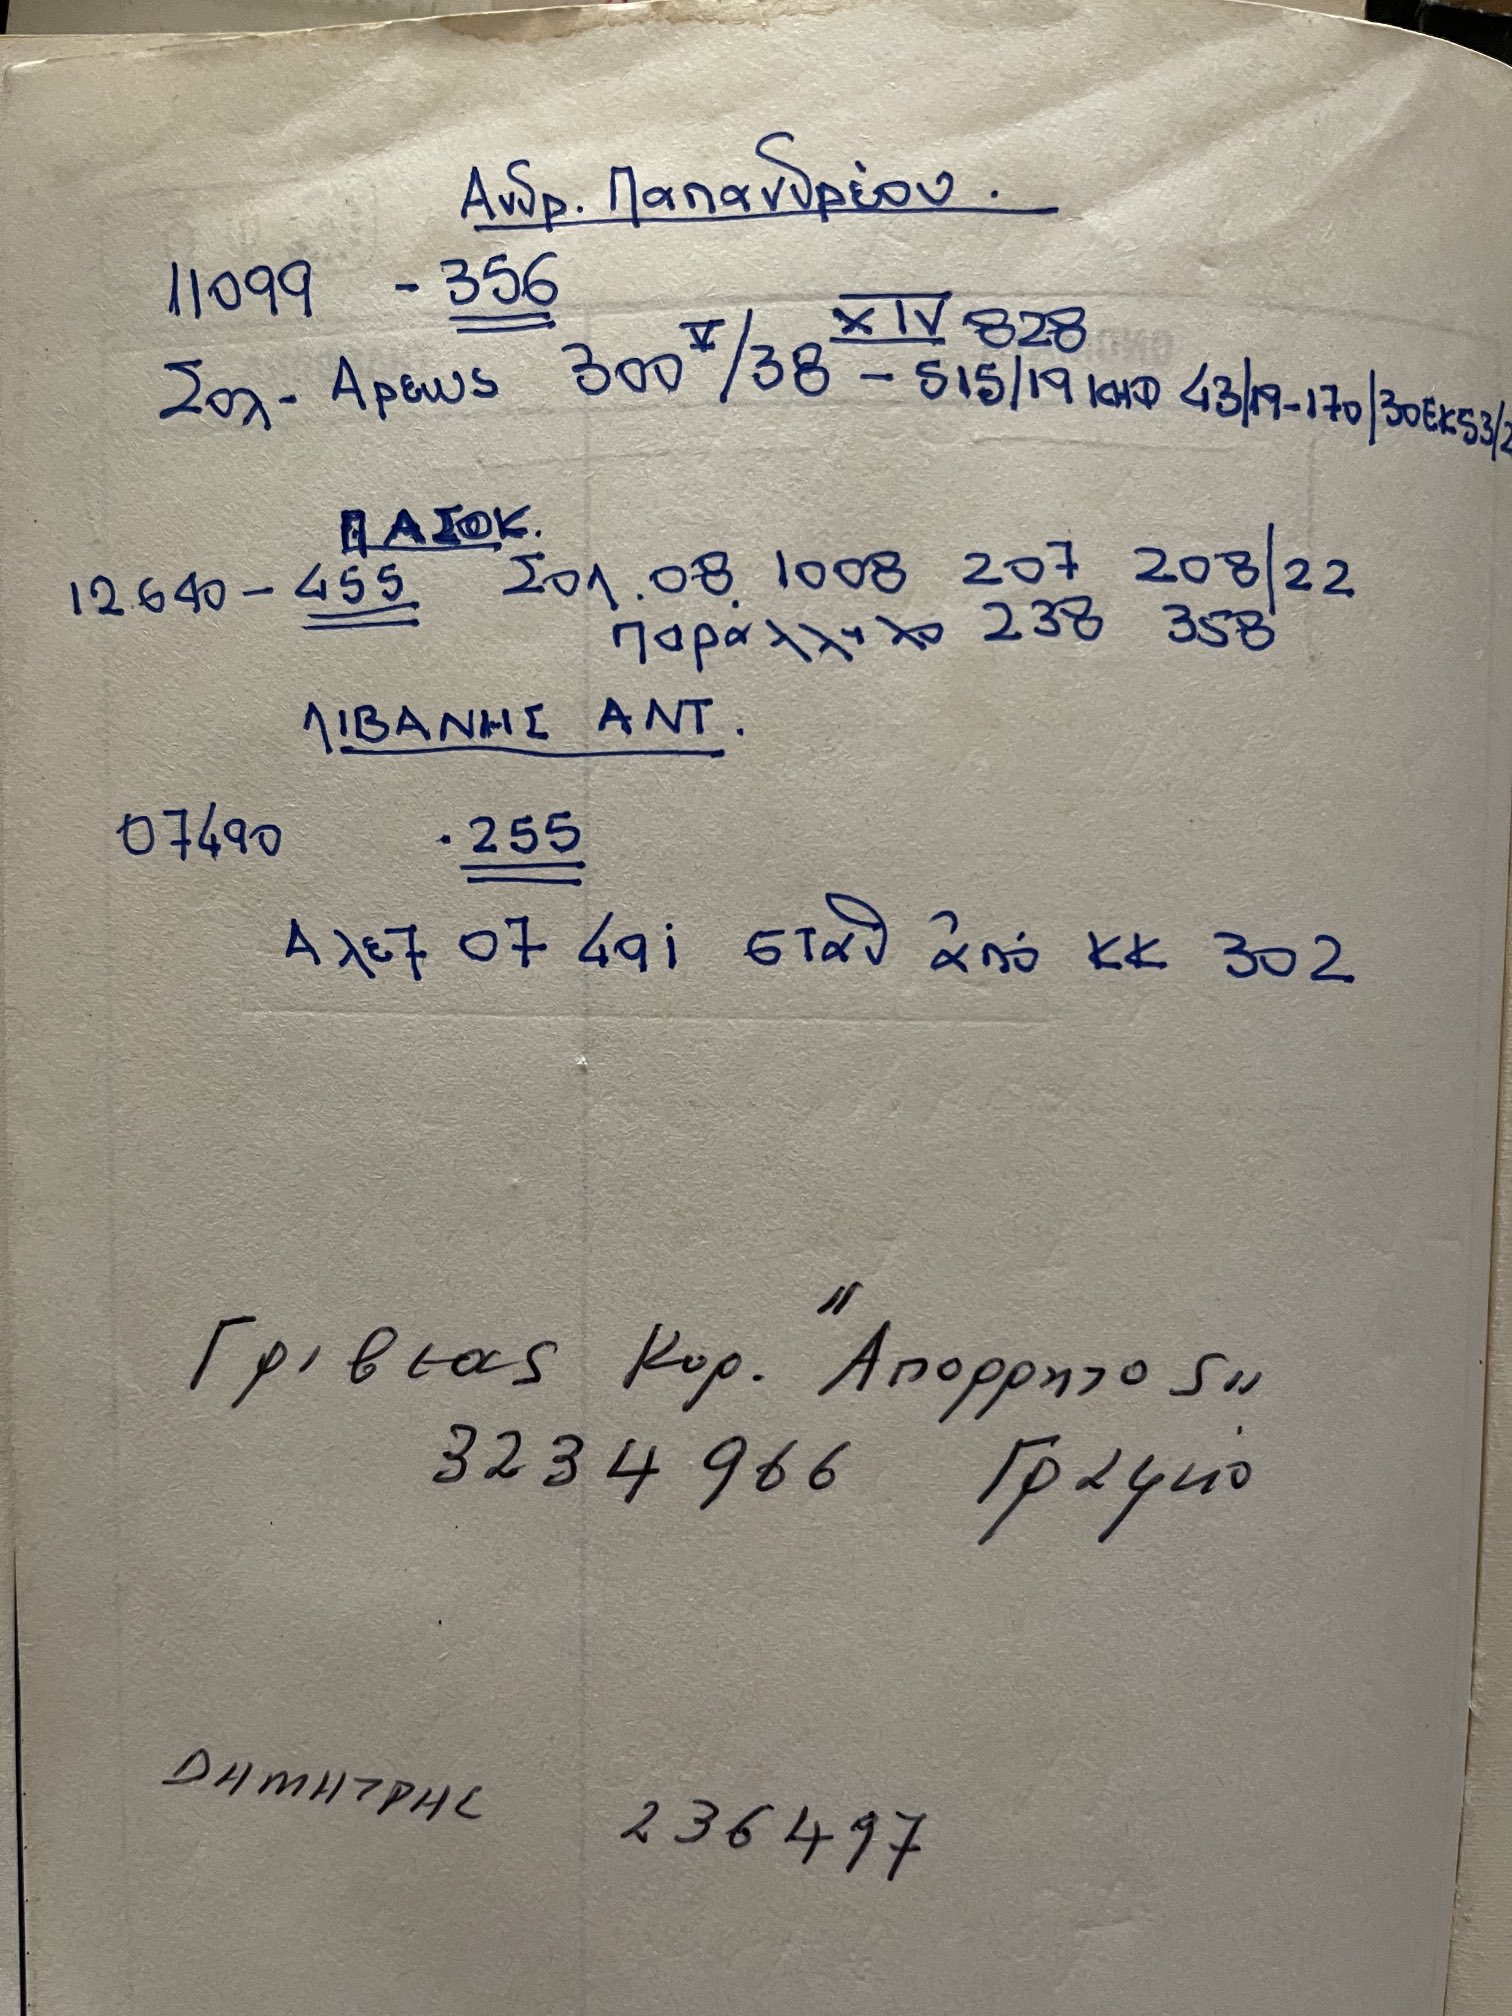 Ανδρ. Παπανδρέου.
11099 - 356
XIV 828
Σολ - Αρεως 300 V/38 - 515/19 ΚΗΦ 43/19-170/30ΕΚ53/2
ΠΑΣΟΚ.
12.640 - 455 Σολ. 08. 1008 207 208/22
παράλληλο 238 358
ΛΙΒΑΝΗΣ ΑΝΤ.
07490 . 255
07 491 σταθ από ΚΚ 302
Γρίβεας Κορ. "Απορρητος"
3234966 Γραφείο
ΔΗΜΗΤΡΗΣ 236497